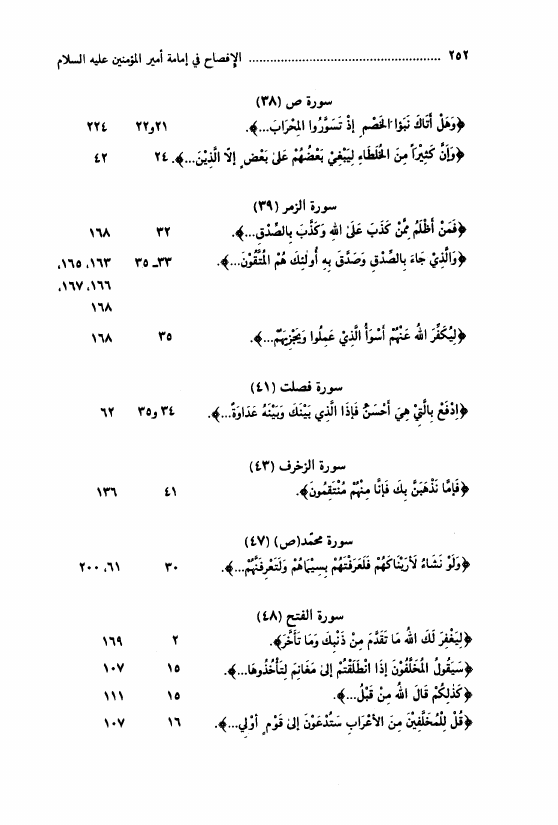 ٢٥٢ ........................................................ الإفصاح في إمامة أمير المؤمنين عليه السلام
سورة ص (٣٨)
﴿وَهَلْ أَتَاكَ نَبَؤا الخَصْمِ إِذْ تَسَوَّرُوا المِحْرَابَ...﴾. ٢١و٢٢ ٢٢٤
﴿وَإِنَّ كَثِيْراً مِنَ الخُلَطَاءِ لَيَبْغِيْ بَعْضُهُمْ عَلىٰ بَعْضٍ إلّا الَّذِيْنَ...﴾. ٢٤ ٤٢
سورة الزمر (٣٩)
﴿فَمَنْ أظْلَمُ مِمَّنْ كَذَبَ عَلىٰ اللهِ وَكَذَّبَ بِالصِّدْقِ...﴾. ٣٢ ١٦٨
﴿وَالَّذِيْ جَاءَ بِالصِّدْقِ وَصَدَّقَ بِهِ أُولٰئِكَ هُمُ المُتَّقُوْنَ...﴾. ٣٣ـ ٣٥ ١٦٣، ١٦٥،
١٦٦، ١٦٧،
١٦٨
﴿لِيُكَفِّرَ اللهُ عَنْهُمْ أسْوَأَ الَّذِيْ عَمِلُوا وَيَجْزِيَهُمْ...﴾. ٣٥ ١٦٨
سورة فصلت (٤١)
﴿اِدْفَعْ بِالَّتِيْ هِيَ أَحْسَنُ فَإذَا الَّذِي بَيْنَكَ وَبَيْنَهُ عَدَاوَةٌ...﴾. ٣٤ و٣٥ ٦٢
سورة الزخرف (٤٣)
﴿فَإمَّا نَذْهَبَنَّ بِكَ فَإنَّا مِنْهُمْ مُنْتَقِمُونَ﴾. ٤١ ١٣٦
سورة محمّد(ص) (٤٧)
﴿وَلَوْ نَشَاءُ لَأرَيْنَاكَهُمْ فَلَعَرَفْتَهُمْ بِسِيْمَاهُمْ وَلَتَعْرِفَنَّهُمْ...﴾. ٣٠ ٦١، ٢٠٠
سورة الفتح (٤٨)
﴿لِيَغْفِرَ لَكَ اللهُ مَا تَقَدَّمَ مِنْ ذَنْبِكَ وَمَا تَأَخَّرَ﴾. ٢ ١٦٩
﴿سَيَقُولُ المُخَلَّفُوْنَ إذَا انْطَلَقْتُمْ إلىٰ مَغَانِمَ لِتَأْخُذُوهَا...﴾. ١٥ ١٠٧
﴿كَذٰلِكُمْ قَالَ اللهُ مِنْ قَبْلُ...﴾. ١٥ ١١١
﴿قُلْ لِلْمُخَلَّفِيْنَ مِنَ الأعْرَابِ سَتُدْعَوْنَ إلىٰ قَوْمٍ أوْلِي...﴾. ١٦ ١٠٧